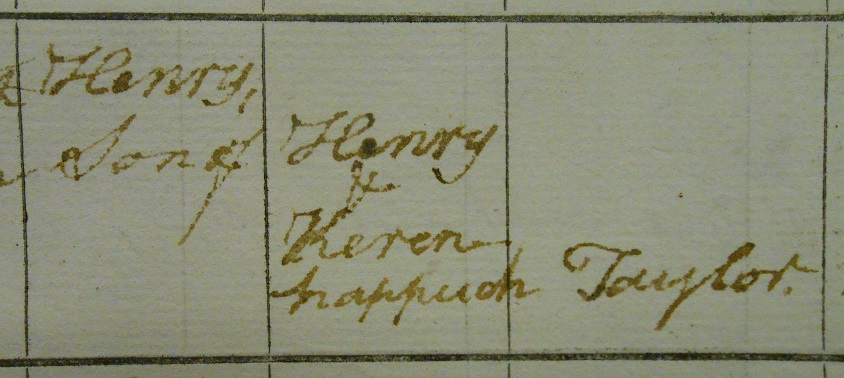 Henry,
Son of
Henry
&
Keren
happuch
Taylor.